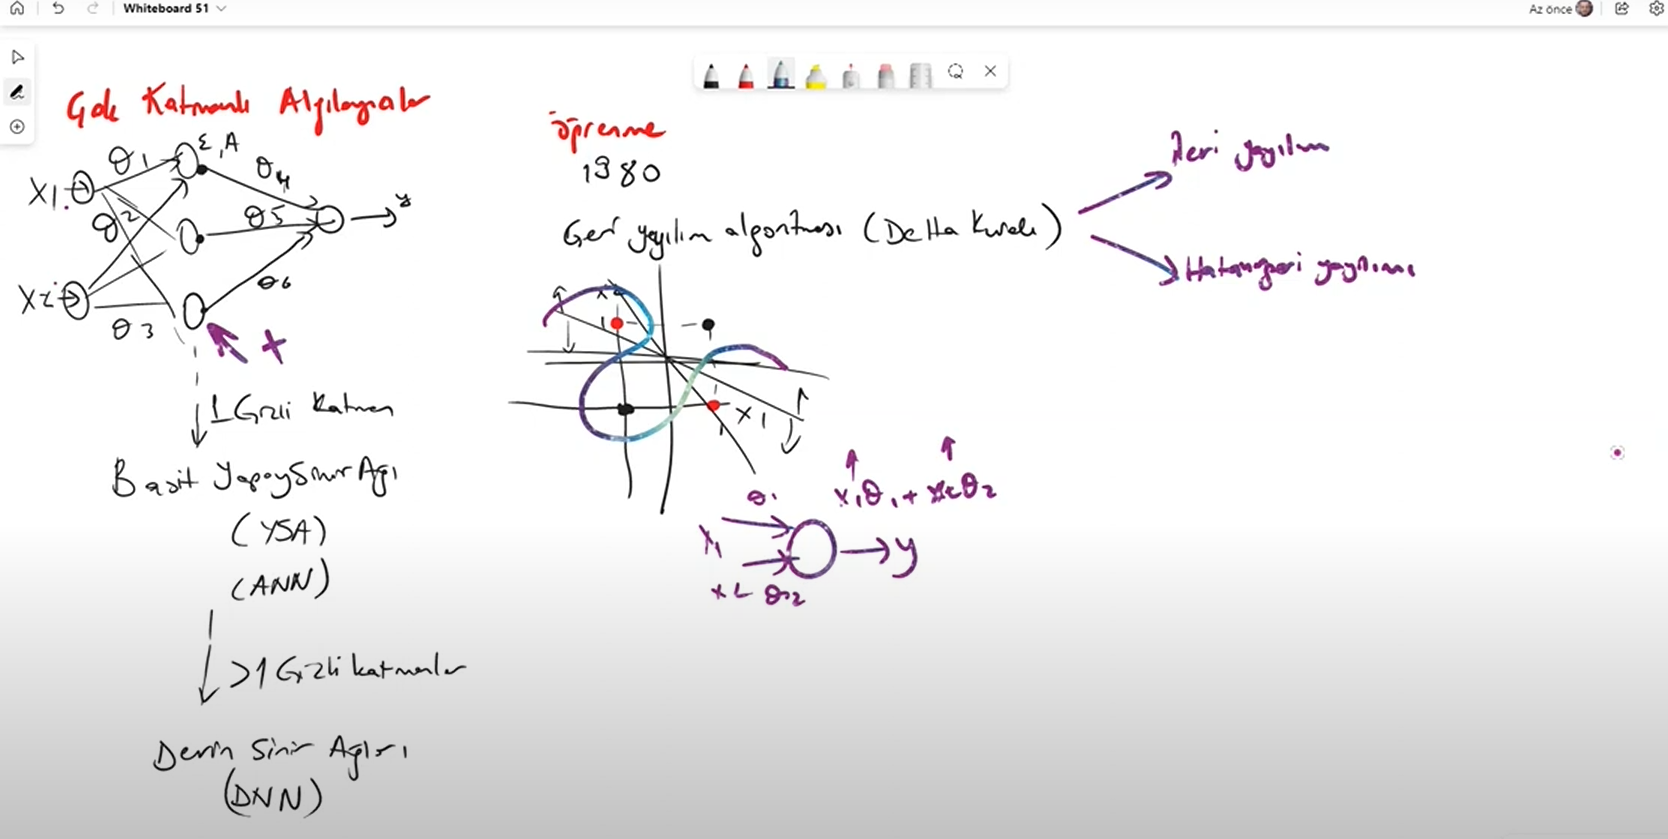 Whiteboard 51
Az önce
Çok Katmanlı Algılayıcılar
X1
θ1
Σ, A
θ4
θ2
θ5
y
X2
θ6
θ3
+
1 Gizli Katman
Basit Yapay Sinir Ağı
(YSA)
(ANN)
>1 Gizli katmanlar
Derin Sinir Ağları
(DNN)
öğrenme
1980
Geri yayılım algoritması (Delta Kuralı)
İleri yayılım
Hatanın geri yayılımı
x2
1
x1
1
x1θ1 + x2θ2
θ1
x1
y
x2 θ2